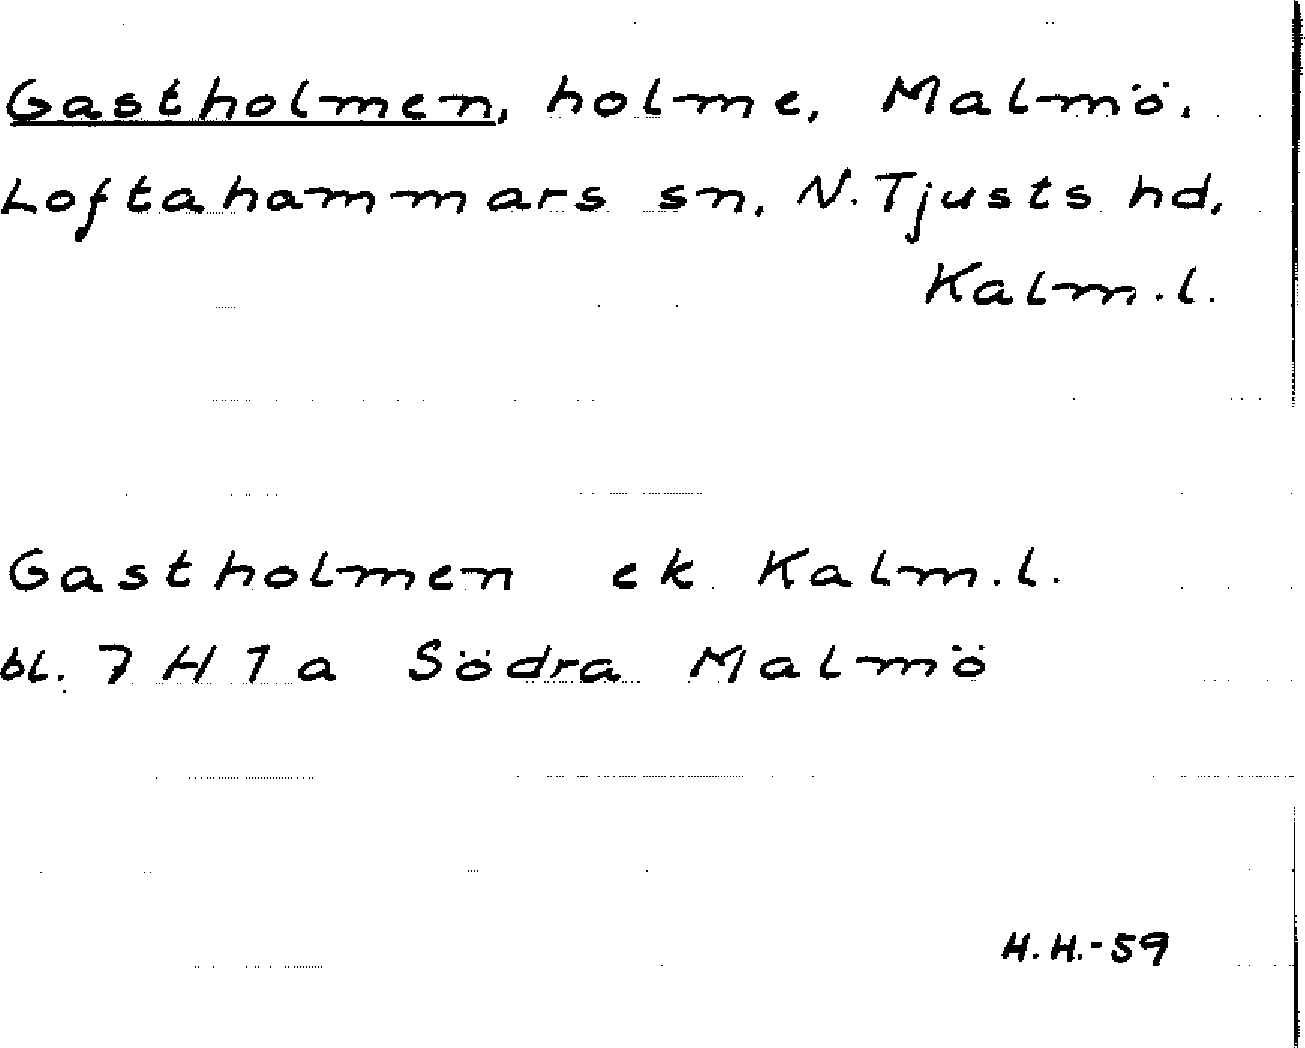 Gastholmen, holme, Malmö.
Loftahammars sn, N. Tjusts hd,
Kalm.l.
Gastholmen ek Kalm.l.
bl. 7 H 1 a Södra Malmö
H.H.-59